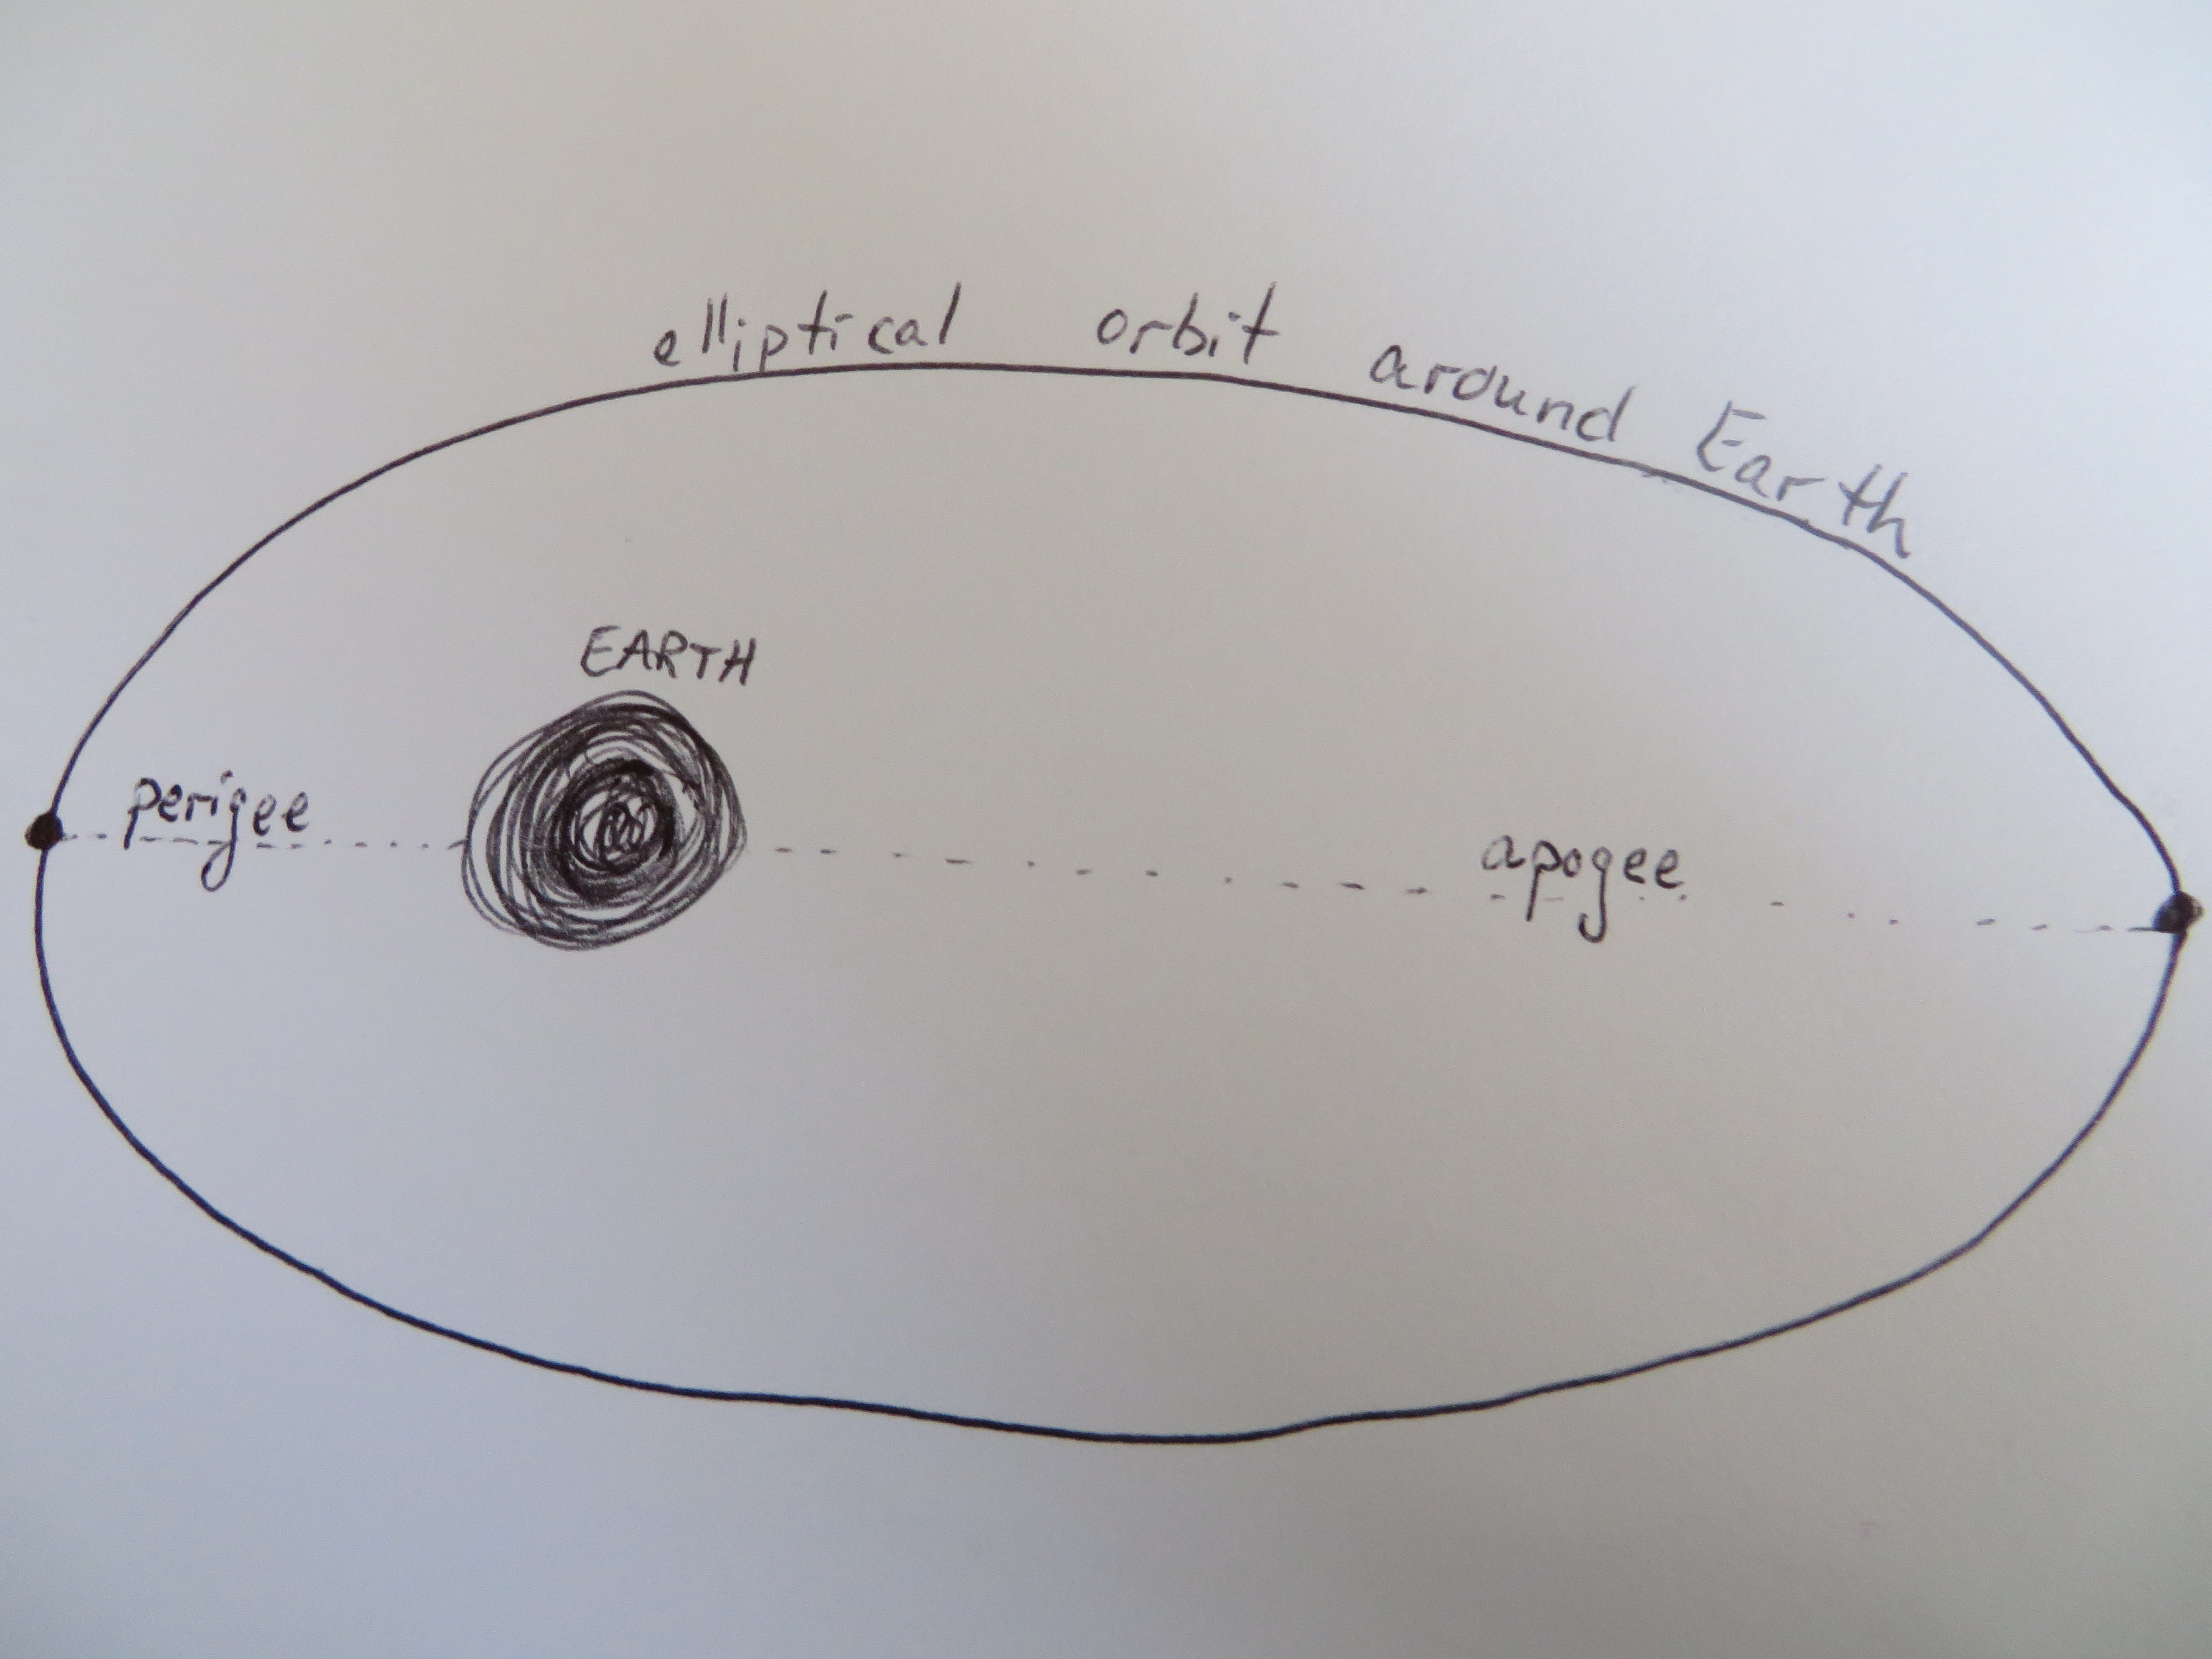 elliptical orbit around Earth
EARTH
perigee
apogee